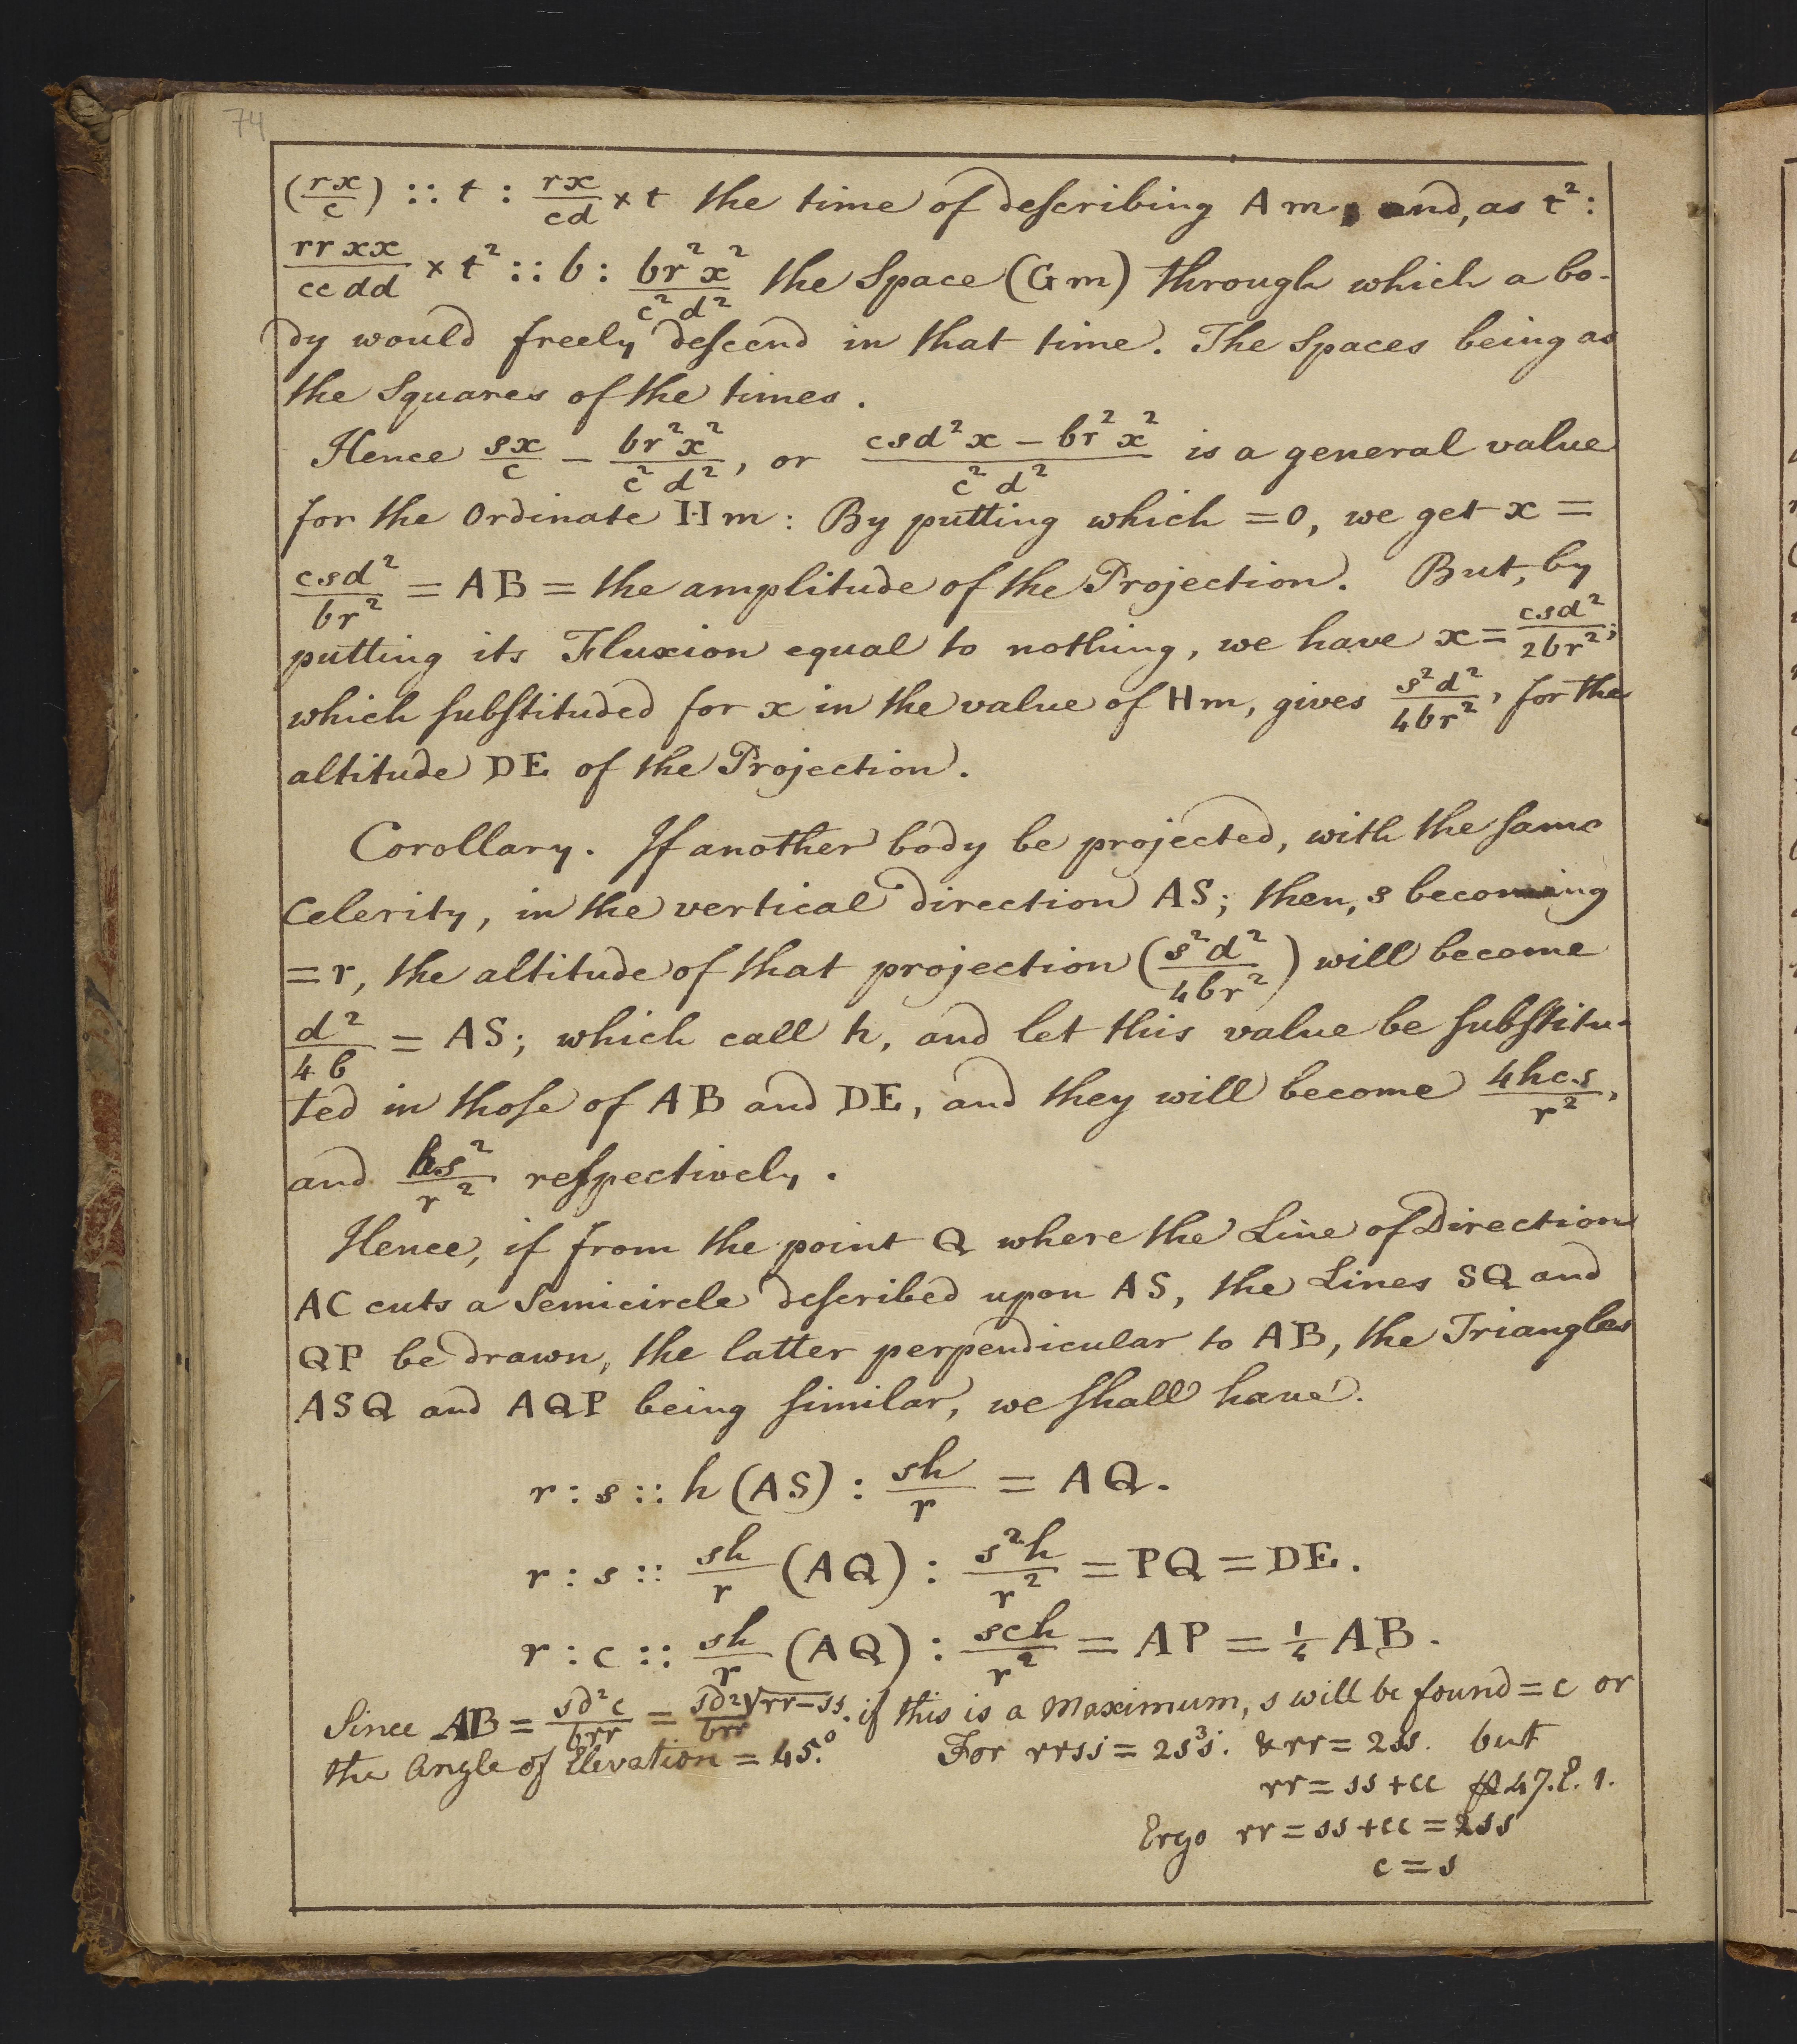 74
(rx/c) :: t : rx/cd × t the time of deſcribing A m, and, as t²:
rrxx/ccdd × t² :: b : br²x²/c²d² the Space (Gm) through which a bo-
dy would freely deſcend in that time. The Spaces being as
the Squares of the times.
Hence sx/c − br²x²/c²d², or (csd²x − br²x²)/c²d² is a general value
for the Ordinate Hm: By putting which =0, we get x =
csd²/br² = AB = the amplitude of the Projection. But, by
putting its Fluxion equal to nothing, we have x = csd²/2br²;
which ſubſtituded for x in the value of Hm, gives s²d²/4br², for the
altitude DE of the Projection.
Corollary. If another body be projected, with the ſame
Celerity, in the vertical direction AS; then, s becoming
=r, the altitude of that projection (s²d²/4br²) will become
d²/4b = AS; which call h, and let this value be ſubſtitu-
ted in thoſe of AB and DE, and they will become 4hcs/r²,
and hs²/r² reſpectively.
Hence, if from the point Q where the Line of Direction
AC cuts a Semicircle deſcribed upon AS, the Lines SQ and
QP be drawn, the latter perpendicular to AB, the Triangles
ASQ and AQP being ſimilar, we ſhall have.
r : s :: h (AS) : sh/r = AQ.
r : s :: sh/r (AQ) : s²h/r² = PQ = DE.
r : c :: sh/r (AQ) : sch/r² = AP = ¼ AB.
Since AB = sd²c/brr = sd²√rr−ss/brr. if this is a Maximum, s will be found = c or
the Angle of Elevation = 45.° For rrsṡ = 2s³ṡ. & rr = 2ss. but
rr = ss + cc 47. E. 1.
Ergo rr = ss + cc = 2ss
c = s